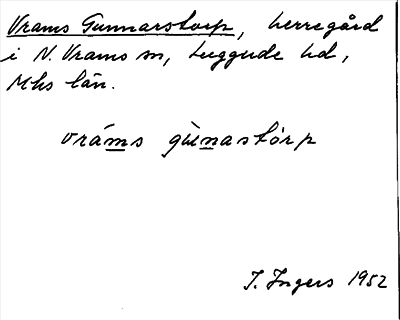 Vrams Gunnarstorp, herregård
i N. Vrams sn, Luggude hd,
Mhs län.
vráms gùnastórp
I. Ingers 1952